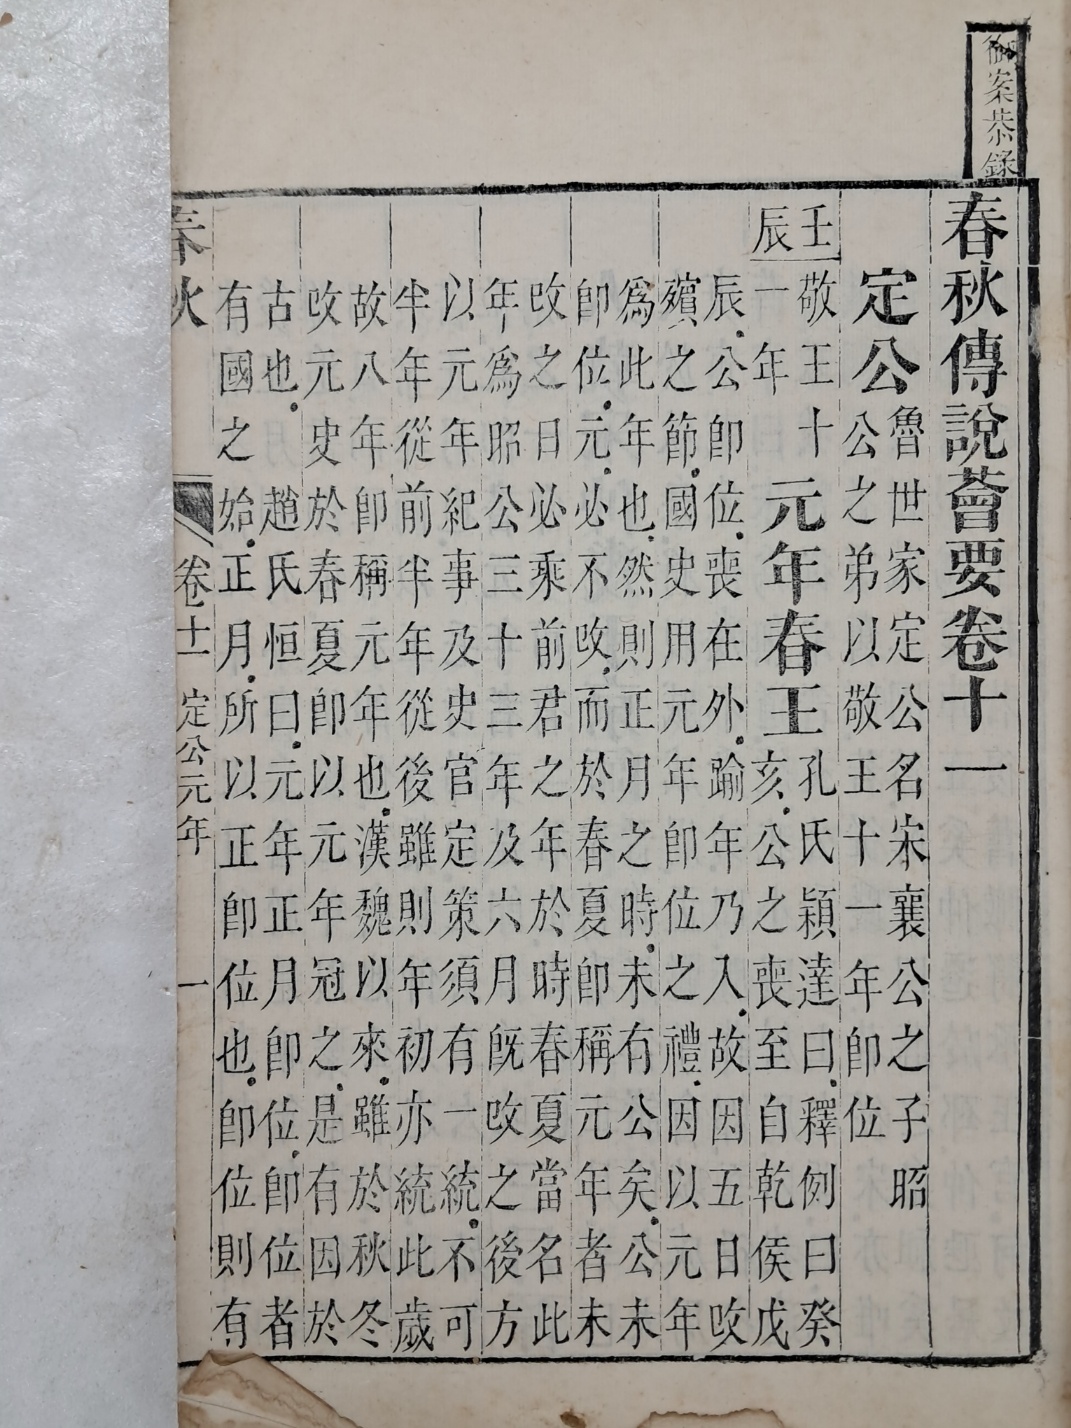 御案恭錄
春秋傳說薈要卷十一
定公
魯世家定公名宋襄公之子昭
公之弟以敬王十一年卽位
壬
辰
敬王十
一年
元年春王
孔氏穎達曰釋例曰癸
亥公之喪至自乾侯戊
辰公卽位喪在外踰年乃入故因五日攺
殯之節國史用元年卽位之禮因以元年
爲此年也然則正月之時未有公矣公未
卽位元必不攺而於春夏卽稱元年者未
攺之日必乘前君之年於時春夏當名此
年爲昭公三十三年及六月旣攺之後方
以元年紀事及史官定策須有一統不可
半年從前半年從後雖則年初亦統此歲
故八年卽稱元年也漢魏以來雖於秋冬
攺元史於春夏卽以元年冠之是有因於
古也趙氏恒曰元年正月卽位卽位者
有國之始正月所以正卽位也卽位則有
春秋
卷十一
定公元年
一